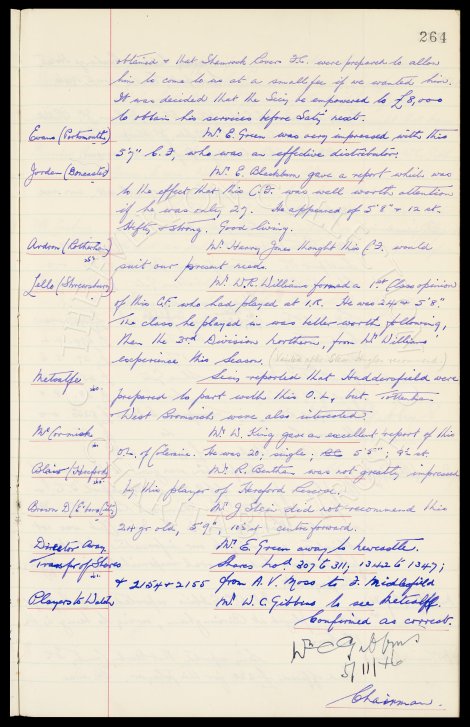 264
obtained & that Shamrock Rovers F.C. were prepared to allow
him to come to us at a small fee if we wanted him.
It was decided that the Secy be empowered to £8,000
to obtain his services before Saty next.
Evans (Portsmouth) Mr. E. Green was very impressed with this
5'7" C.F, who was an effective distributor.
Jordan (Doncaster) Mr. E. Blackburn gave a report which was
to the effect that this C.F. was well worth attention
if he was only 27. He appeared of 5'8" & 12 st.
Hefty & strong. Good living.
Ardron (Rotherham) Mr. Harry Jones thought this C.F. would
suit our present needs.
Lello (Shrewsbury) Mr. W.R. Williams formed a 1st Class opinion
of this C.F. who had played at I.R. He was 24 & 5'8"
The class he played in was better worth following,
than the 3rd Division Northern, from Mr Williams'
experience this Season.
Metcalfe Secy reported that Huddersfield were
prepared to part with this O.L, but Tottenham
& West Bromwich were also interested
McCormick Mr. W. King gave an excellent report of this
O.L. of Coleraine. He was 20, single; 5'5"; 9½ st.
Blair (Hereford) Mr. R. Bentham was not greatly impressed
by this player of Hereford Reserve.
Brown D (E Fife) Mr. J Stein did not recommend this
24 yr old, 5'9", 10½ st centre forward.
Director Away Mr. E. Green away to Newcastle.
Transfr of Shares Shares Nos. 307 to 311, 1342 to 1347;
& 2154 & 2155 from A. V. Moss to F. Micklesfield
Players to Watch Mr. W. C. Gibbins to see Metcalfe.
Confirmed as correct.
Wm C Gibbins
5/11/46
Chairman.